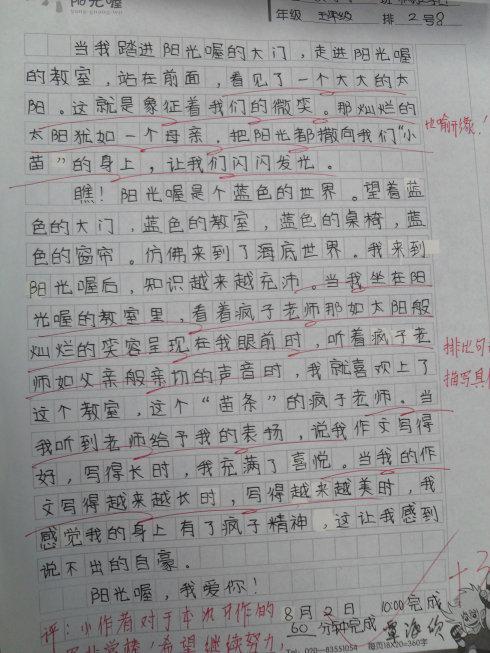 阳光喔
年级 五年级 排 2号8
当我踏进阳光喔的大门,走进阳光喔
的教室,站在前面,看见了一个大大的太
阳。这就是象征着我们的微笑。那灿烂的
太阳犹如一个母亲,把阳光都撒向我们“小
苗”的身上,让我们闪闪发光。
比喻形象!
瞧!阳光喔是个蓝色的世界。望着蓝
色的大门,蓝色的教室,蓝色的桌椅,蓝
色的窗帘。仿佛来到了海底世界。我来到
阳光喔后,知识越来越充沛。当我坐在阳
光喔的教室里,看着疯子老师那如太阳般
灿烂的笑容呈现在我眼前时,听着疯子老
师如父亲般亲切的声音时,我就喜欢上了
排比句
描写具
这个教室,这个“苗条”的疯子老师。当
我听到老师给予我的表扬,说我作文写得
好,写得长时,我充满了喜悦。当我的作
文写得越来越长时,写得越来越美时,我
感觉我的身上有了疯子精神,这让我感到
说不出的自豪。
阳光喔,我爱你!
评:小作者对于本次习作的
8月2日 10:00完成
60分钟完成
希望继续努力,
Tel: 020-83551054 每页18X20=360字